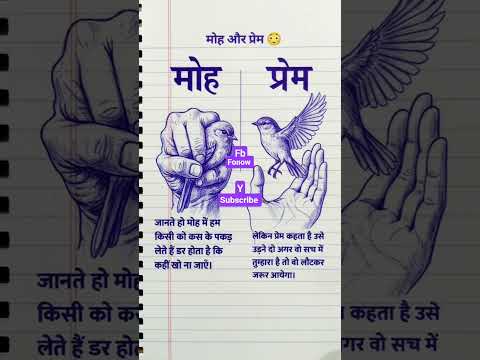 मोह और प्रेम 😳
मोह
प्रेम
Fb
Fonow
Y
Subscribe
जानते हो मोह में हम
किसी को कस के पकड़
लेते हैं डर होता है कि
कहीं खो ना जाएं।
लेकिन प्रेम कहता है उसे
उड़ने दो अगर वो सच में
तुम्हारा है तो वो लौटकर
जरूर आयेगा।
जानते हो मोह
किसी को कस
लेते हैं डर हो
कहता है उसे
गर वो सच में